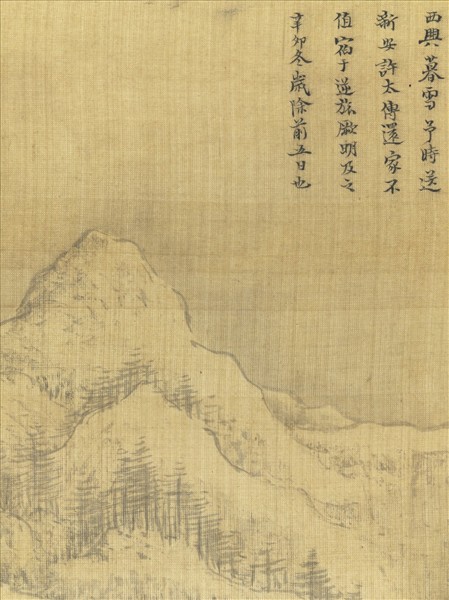 西興暮雪予時送
新安許太傅還家不
值宿于逆旅厥明及之
辛卯冬歲除前五日也